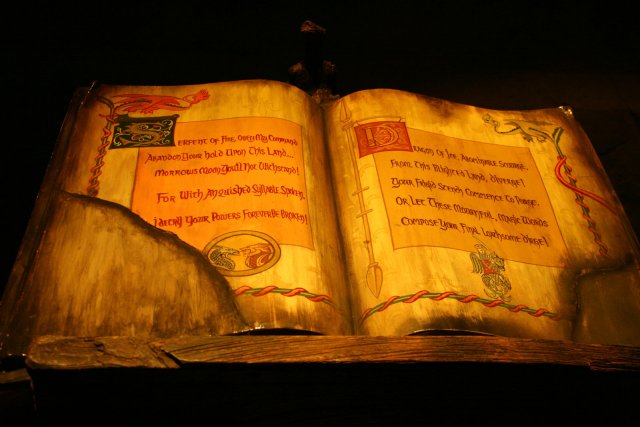 Serpent of Fire, Obey My Command
Abandon Your Hold Upon This Land...
Morrows Moon You'll Not Withstand!
For With Anguished Syllable Spoken,
I Decry Your Powers Forever Be Broken!
Dragon of Ice, Abominable Scourge,
From This Blighted Land, Diverge!
Your Frigid Seeds Commence To Purge,
Or Let These Malignant, Magik Words
Compose Your Final Loathsome Dirge!